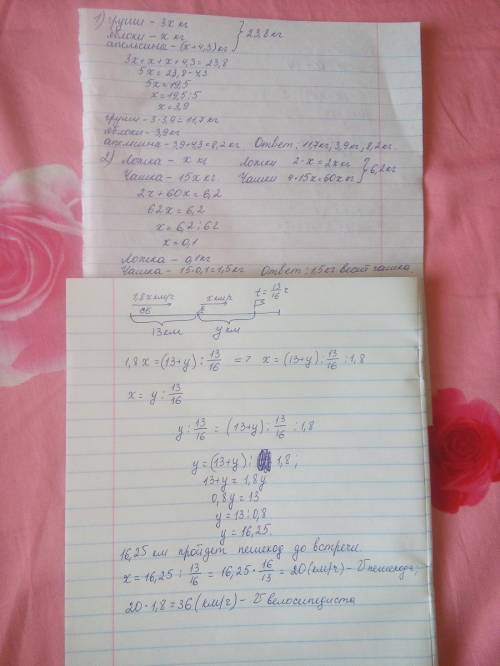 1) груши - 3x кг
яблоки - x кг } 23,8 кг
апельсина - (x+4,3) кг
3x+x+x+4,3=23,8
5x=23,8-4,3
5x=19,5
x=19,5:5
x=3,9
груши - 3·3,9=11,7кг
яблоки - 3,9кг
апельсина - 3,9+4,3=8,2кг Ответ: 11,7кг, 3,9кг, 8,2кг.
2) Ложка - x кг Ложки 2·x=2x кг } 6,2кг
Чашка - 15x кг Чашки 4·15x=60x кг
2x+60x=6,2
62x=6,2
x=6,2:62
x=0,1
Ложка - 0,1кг
Чашка - 15·0,1=1,5кг Ответ: 1,5кг весит чашка
1,8x км/ч x км/ч t = 13/16 ч
13 км y км
1,8x=(13+y):13/16 => x=(13+y):13/16:1,8
x=y:13/16
y:13/16=(13+y):13/16:1,8
y=(13+y):1,8;
13+y=1,8y
0,8y=13
y=13:0,8
y=16,25.
16,25 км пройдет пешеход до встречи.
x=16,25:13/16=16,25·16/13=20(км/ч)-v пешехода,
20·1,8=36(км/ч)-v велосипедиста